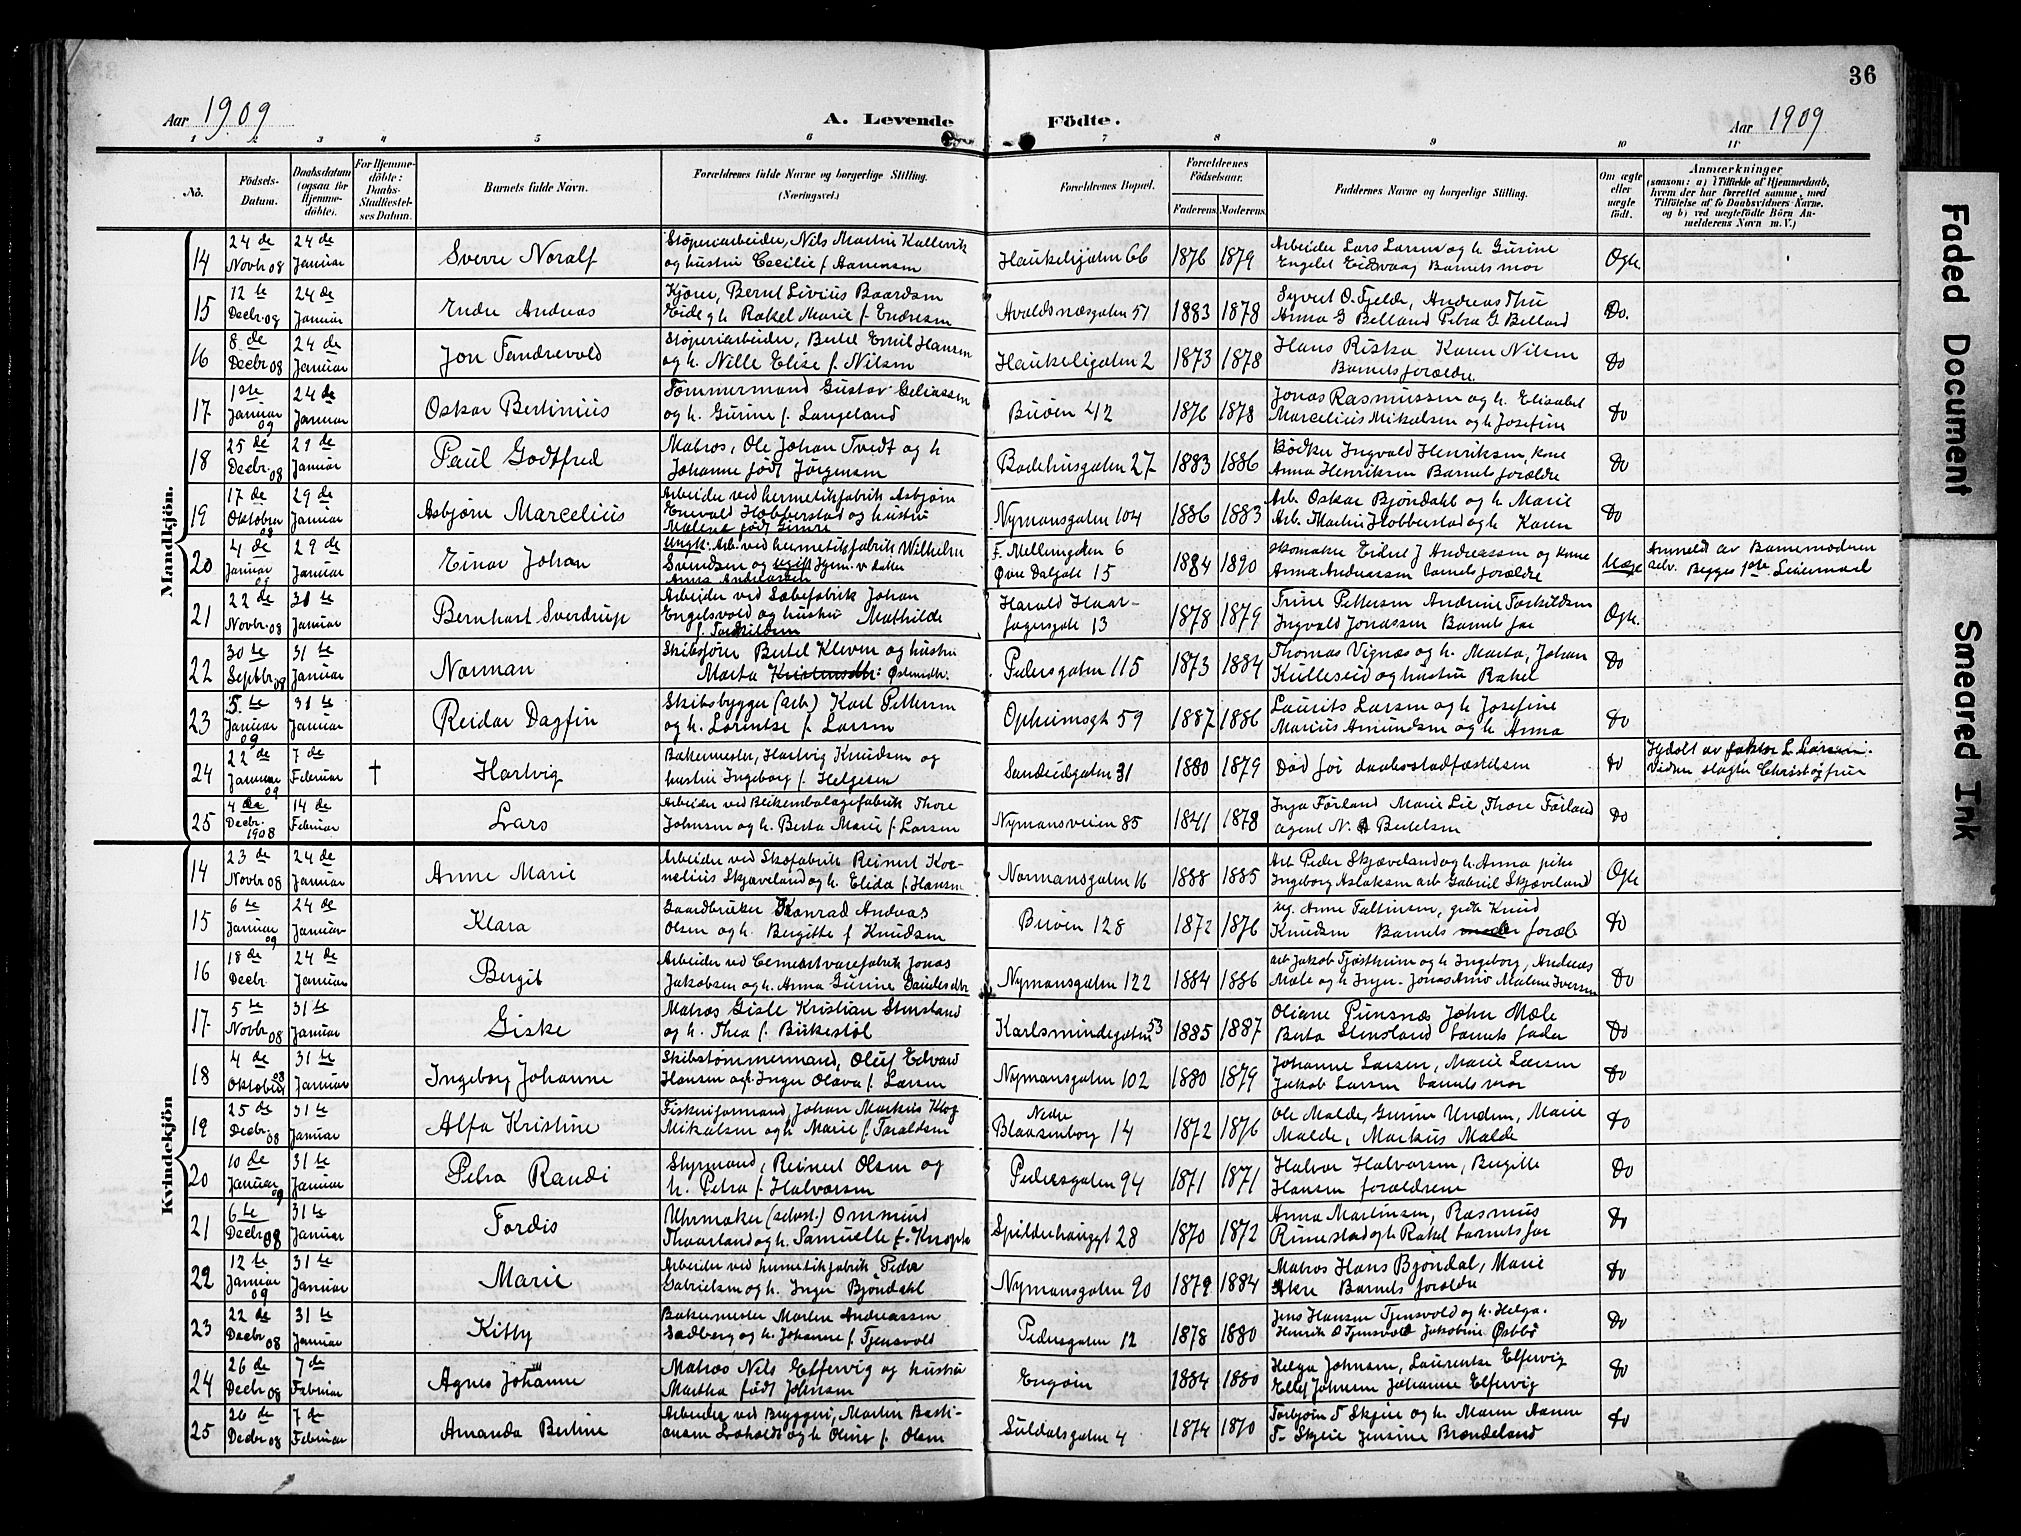 36
Aar 1909
A. Levende Födte.
Aar 1909
1 2 3 4 5 6 7 8 9 10 11
No.
Födsels-Datum.
Daabsdatum (ogsaa for Hjemme-döbte).
For Hjemme-döbte: Daabs-Stadfæstel-ses Datum.
Barnets fulde Navn.
Forældrenes fulde Navne og borgerlige Stilling. (Næringsvei.)
Forældrenes Bopæl.
Forældrenes Födselsaar.
Faderens. Moderens.
Faddernes Navne og borgerlige Stilling.
Om ægte eller uægte födt.
Anmærkninger
(saasom: a) i Tilfælde af Hjemmedaab, hvem der har forrettet samme, med Tilföielse af to Daabsvidners Navne, og b) ved uægtefödte Börn An-melderens Navn m. V.)
Mandkjön.
14 24de Novbr 08 24de Januar Sverre Noralf Støperiarbeider, Nils Martin Kallevik og hustru Cecilie f. Aanensen Haukeligaten 66 1876 1879 Arbeider Lars Larsen og h. Gurine Engelet Eidsvaag Barnets mor Ægte.
15 12te Decbr 08 24de Januar Endre Andreas Kjører, Bernt Livius Baardsen Eide og h. Rakel Marie f. Endresen Avaldsnæsgaten 51 1883 1878 Syvert O. Fjelde, Andreas Thu Anna G Belland Petra G Belland Do.
16 8de Decbr 08 24de Januar Jon Tandrevold Støperiarbeider, Bertel Emil Hansen og h. Nille Elise f. Nilsen Haukeligaten 2 1873 1878 Hans Riska Karen Nilsen Barnets forældre. Do
17 1ste Januar 09 24de Januar Oskar Bertinius Tømmermand Gustav Geliassen og h. Gurine f. Langeland Buøen 42 1876 1878 Jonas Rasmussen og h. Elisabet Marcelius Mikelsen og h Josefine Do
18 25de Decbr. 08 29de Januar Paul Godtfred Matros, Ole Johan Tvedt og h Johanne født Jørgensen Badehusgaten 27 1883 1886 Bødker Ingvald Henriksen, kone Anna Henriksen Barnets forældre Do
19 17de Oktober 08 29de Januar Asbjørn Marcelius Arbeider ved hermetikfabrik Asbjørn Enevald Hobberstad og hustru Malene født Gimre Nymansgaten 104 1886 1883 Arb. Oskar Bjøndahl og h. Marie Arb. Martin Hobberstad og h Karen Do
20 4de Januar 09 29de Januar Einar Johan Ungk: Arb. ved hermetikfabrik Wilhelm Svendsen og ugift Hjem. v datter Anna Andreassen F. Mellemgaten 6 Øvre Dalgate 15 1884 1890 skomaker Eidrel J Andreassen og kone Anna Andreassen barnets forældre Uægte Anmeldt av Barnemoderen selv. Begges 1ste Leiermaal
21 22de Novbr. 08 31te Januar Bernhart Sverdrup Arbeider ved Sæbefabrik Johan Engelsvold og hustru Mathilde f. Torkildsen Harald Haar-fagersgate 13 1878 1879 Trine Pettersen Andrine Torkildsen Ingvald Jonassen Barnets far Ægte.
22 30te Septbr 08 31te Januar Norman Skibsfører Bertel Kleven og hustru Marta Kristensdtr: Østensdtr. Pedersgaten 115 1873 1884 Thomas Vignæs og h. Marta, Johan Kulleseid og hustru Rakel Do
23 5te Januar 09 31te Januar Reidar Dagfin Skibsbygger (arb) Karl Pettersen og h. Lorentse f. Larsen Opheimsgt 59 1887 1886 Laurits Larsen og h Josefine Marius Amundsen og h Anna Do
24 22de Januar 09 7de Februar † Hartvig Bakermester, Hartvig Knudsen og hustru Ingeborg f. Helgesen Sandeidgaten 31 1880 1879 Død før daabsstadfæstelsen Do Hjdøbt av faktor L. Larsen. Vidner slagter Christof fruer
25 4de Decbr. 1908 14de Februar Lars Arbeider ved Blikembalagefabrik Thore Johnsen og h. Berta Marie f. Larsen Nymansveien 85 1841 1878 Inga Førland Marie Lie, Thore Førland agent N. A Bertelsen Do
Kvindekjön
14 23de Novbr 08 24de Januar Anne Marie Arbeider ved Skofabrik Reinert Kor-nelius Skjæveland og h. Elida f. Hansen Normansgaten 16 1888 1885 Arb Peder Skjæveland og h. Anna pike Ingeborg Aslaksen arb Gabriel Skjæveland Ægte
15 6te Januar 09 24de Januar Klara Gaardbruker Konrad Andreas Olsen og h. Bergitte f Knudsen Buøen 128 1872 1876 Anne Faltinsen, gote Knud Knudsen Barnets moder foræld Do
16 18de Decbr. 24de Januar Bergit Arbeider ved Cementvarefabrik Jonas Jakobsen og h. Anna Gurine Gaudesdtr Nymansgaten 122 1884 1886 arb Jakob Tjøstheim og h Ingeborg, Andreas Mæle og h Inger Jonas Arnø Malene Iversen Do
17 5te Novbr 08 31te Januar Giske Matros Gisle Kristian Stensland og h. Thea f. Birkestøl Karlsmindegaten 53 1885 1887 Oliane Punsnæs John Mæle Berta Stensland barnets fader Do
18 4de Oktober 08 31te Januar Ingeborg Johanne Skibstømmermand, Oluf Edvard Hansen og h. Inger Olava f. Larsen Nymansgaten 102 1880 1879 Johanne Larsen, Marie Larsen Jakob Larsen barnets mor Do
19 25de Decbr. 08 31te Januar Alfa Kristine Fiskeriformand, Johan Markus Klog Mikalsen og h Marie f. Taraldsen Nedre Blaasenborg 14 1872 1876 Ole Malde, Gurine Undem, Marie Malde, Markus Malde Do
20 10de Januar 09 31te Januar Petra Randi Styrmand, Reinert Olsen og h. Petra f. Halvorsen Pedersgaten 94 1871 1871 Halvor Halvorsen, Bergitte Hansen forældrene Do
21 6te Decbr 08 31te Januar Tordis Uhrmaker (selvst.) Ommund Thaarland og h. Samuelle f. Knoph Spilderhauggt 28 1870 1872 Anna Martinsen, Rasmus Rimestad og h Rakel barnets far Do
22 12te Januar 09 31te Januar Marie Arbeider ved hermetikfabrik Peder Gabrielsen og h. Inger Bjøndahl Nymansgaten 90 1879 1884 Matros Hans Bjøndal, Marie Akre Barnets forældre Do
23 22de Decbr 08 31te Januar Kitty Bakermester Martin Andreassen Sædberg og h. Johanne f. Tjensvold Pedersgaten 12 1878 1880 Jens Hansen Tjensvold og h. Helga. Henrik O Tjensvold Jakobine Østbø Do
24 26de Decbr 08 7de Februar Agnes Johanne Matros Nils Elfervig og hustru Martha født Johnsen Engøen 1884 1880 Helga Johnsen, Laurentse Elfervig Ellef Johnsen Johanne Elfervig Do
25 26de Decbr 08 7de Februar Amanda Bertine Arbeider ved Bryggeri, Martin Basti-ansen Loholdt og h Oline f. Olsen Suldalsgaten 4 1874 1870 Torbjørn T Skjeie og h. Maren Aanen T. Skjeie Jensine Brondeland Do
Faded Document
Smeared Ink